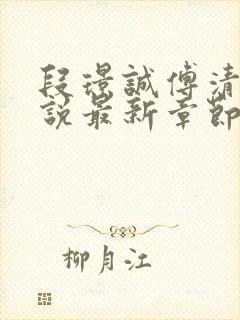 段璟誠傅清
說最新章節
柳月江